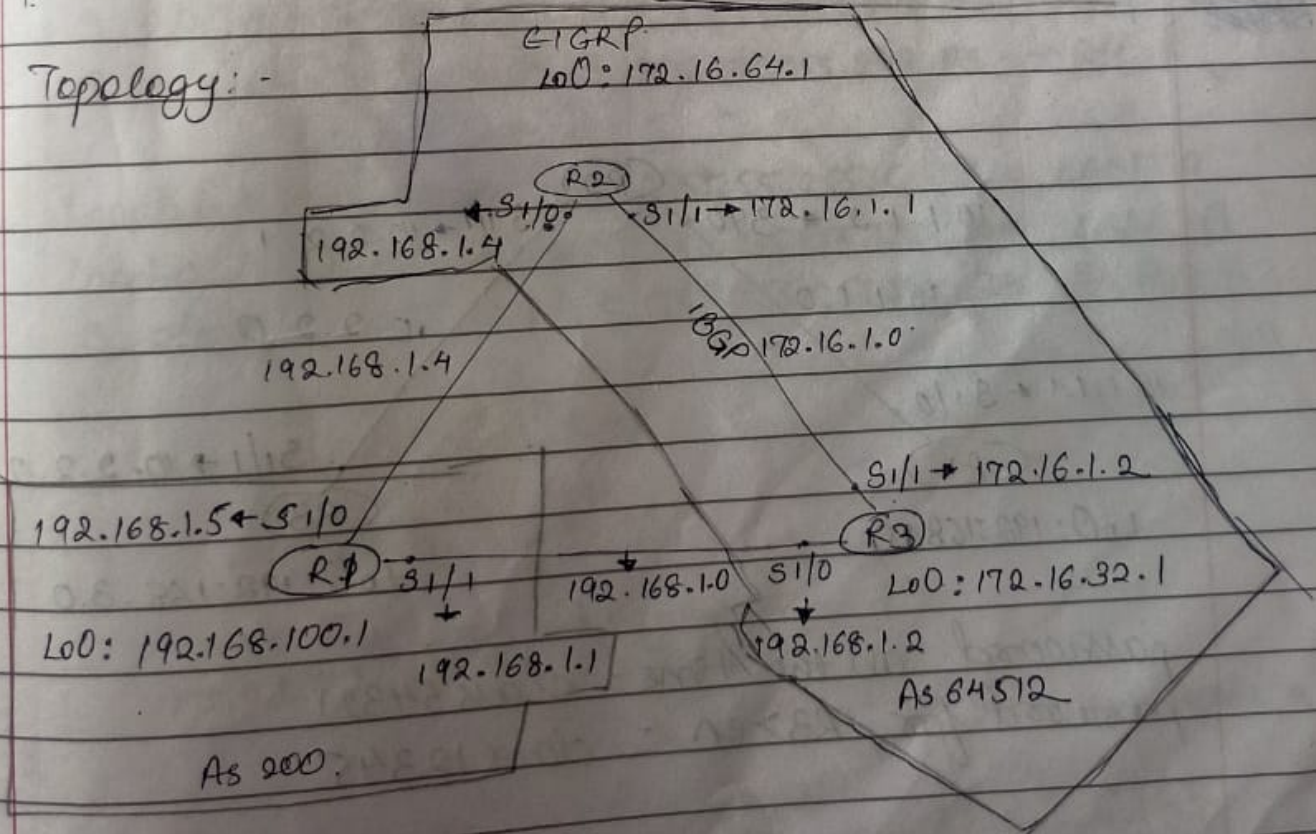 Topology:-
EIGRP
Lo0: 172.16.64.1
R2
S1/0
S1/1 → 172.16.1.1
192.168.1.4
192.168.1.4
IBGP 172.16.1.0
S1/1 → 172.16.1.2
192.168.1.5 ← S1/0
R1
S1/1
192.168.1.0
S1/0
R3
Lo0: 172.16.32.1
Lo0: 192.168.100.1
192.168.1.1
192.168.1.2
As 64512
As 200.